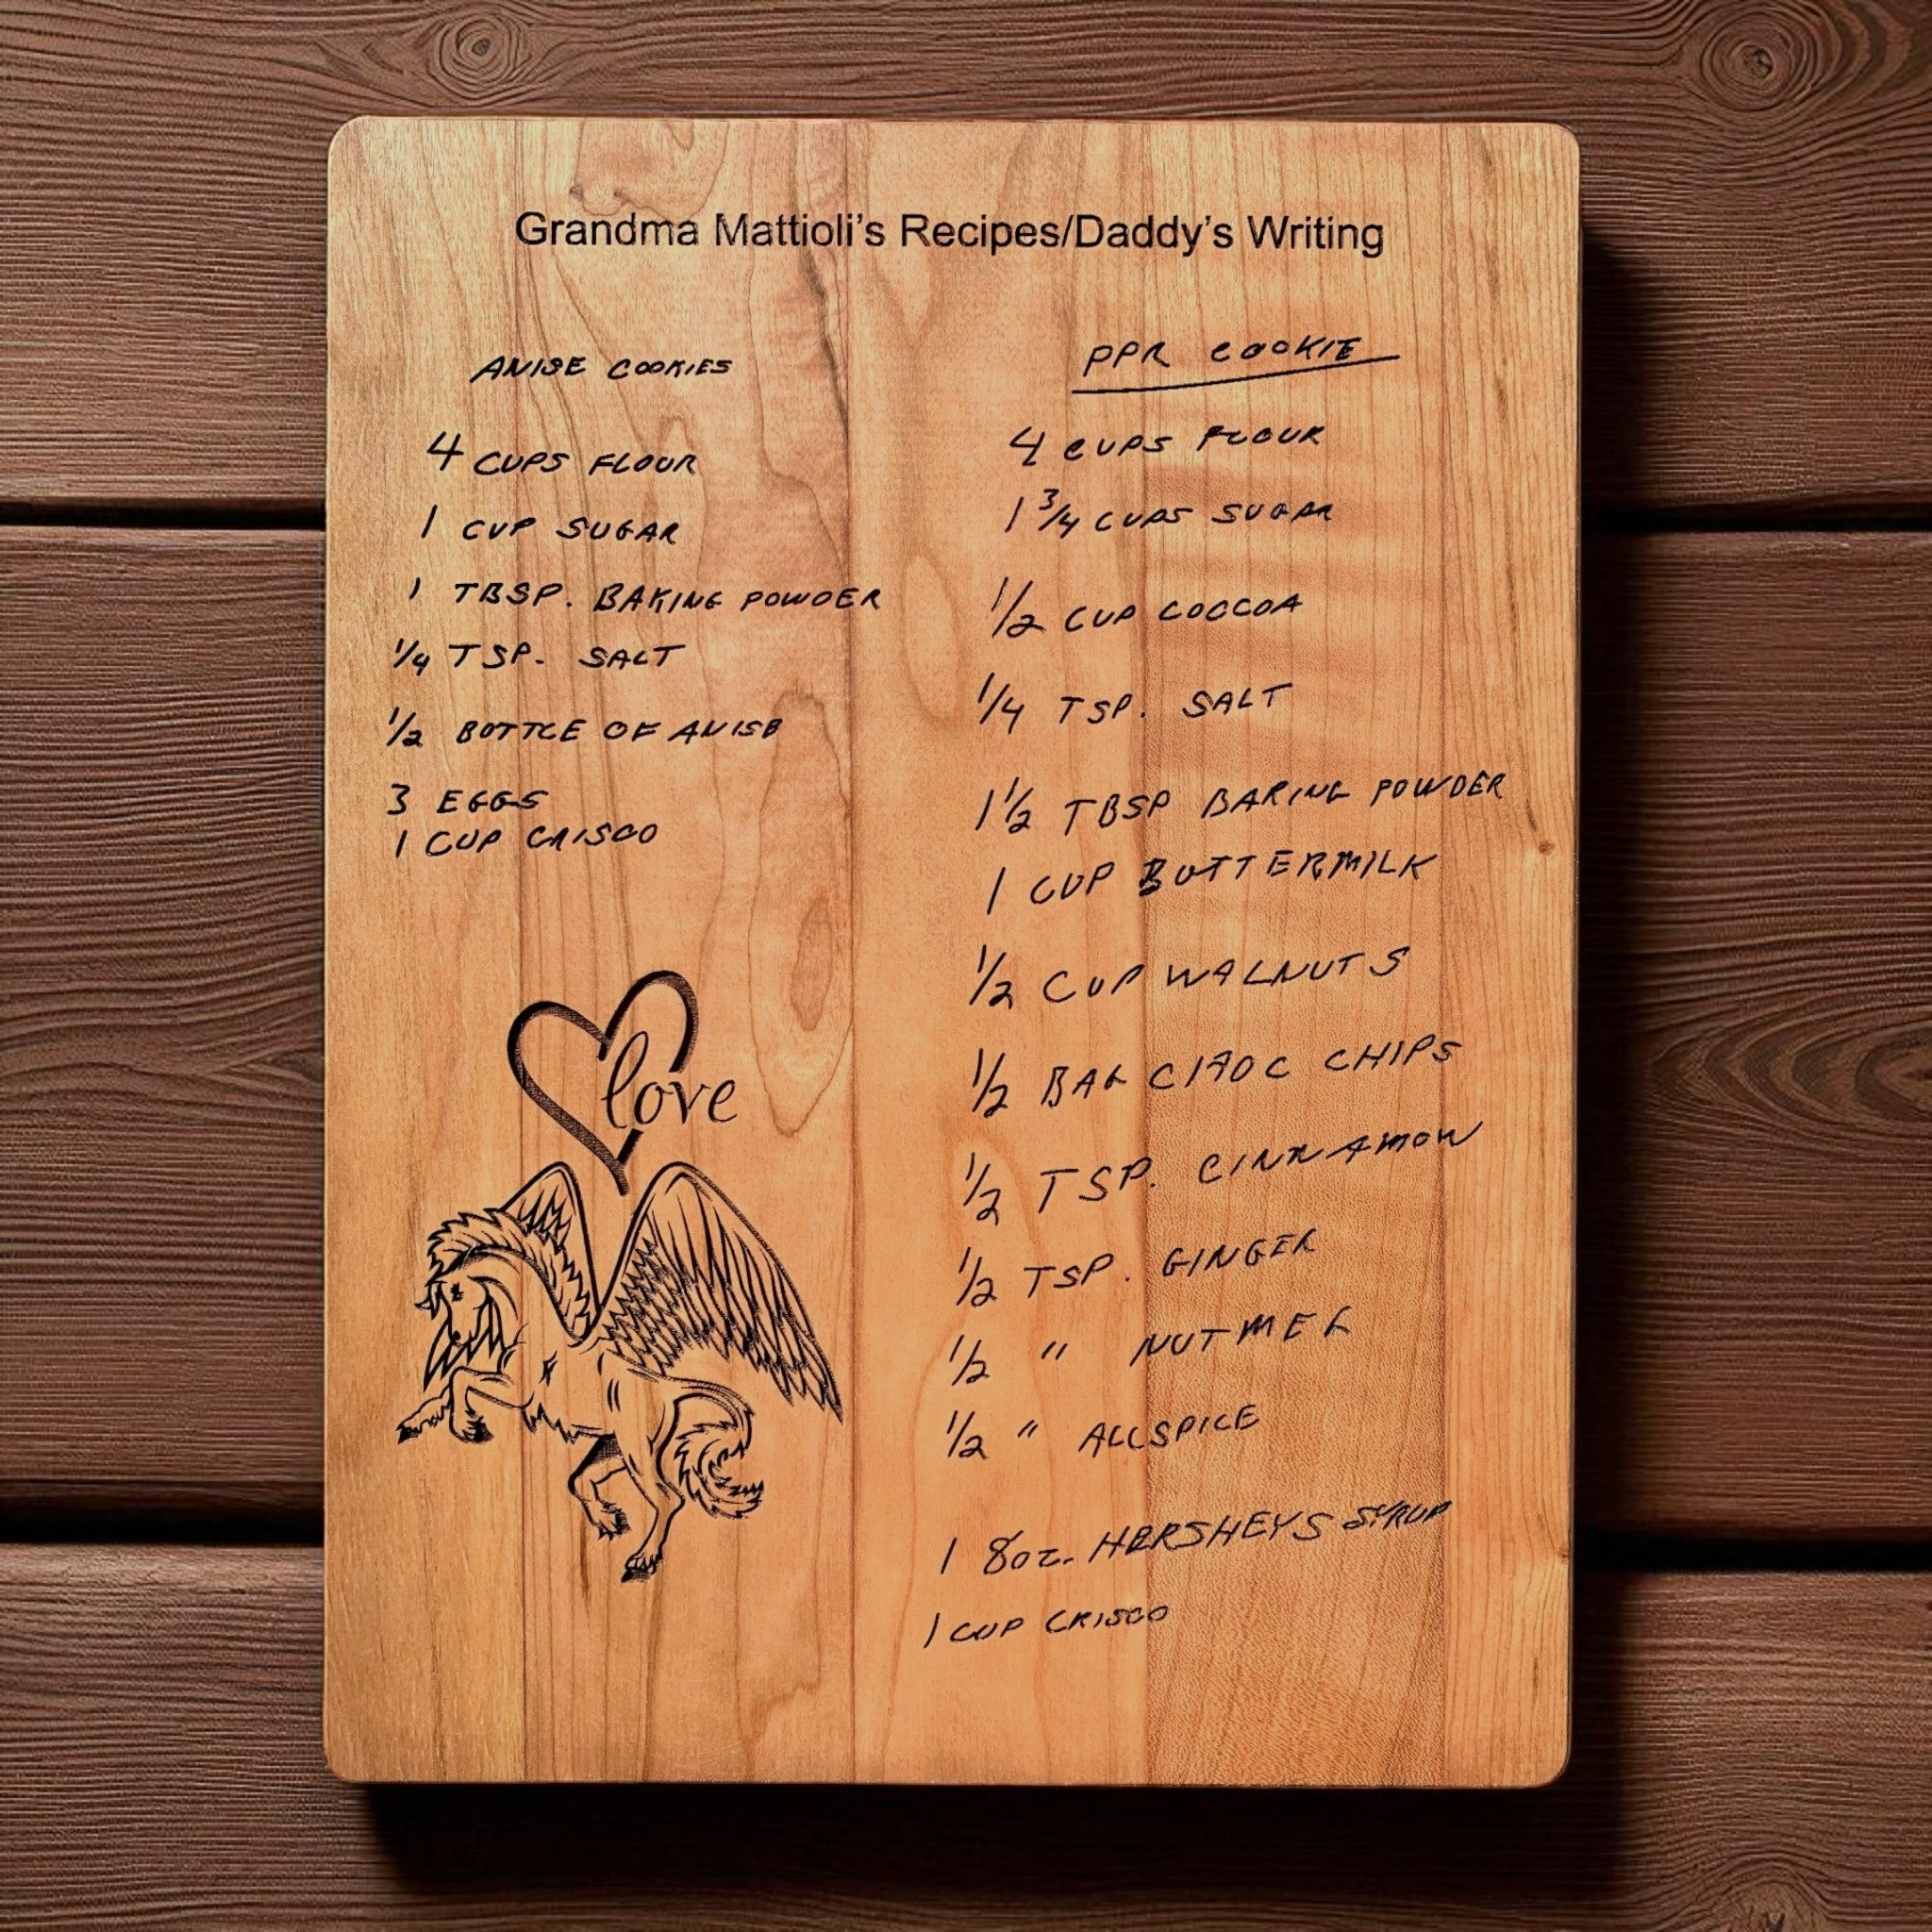 Grandma Mattioli's Recipes/Daddy's Writing
ANISE COOKIES
4 CUPS FLOUR
1 CUP SUGAR
1 TBSP. BAKING POWDER
1/4 TSP. SALT
1/2 BOTTLE OF ANISE
3 EGGS
1 CUP CRISCO
love
PPR COOKIE
4 CUPS FLOUR
1 3/4 CUPS SUGAR
1/2 CUP COCCOA
1/4 TSP. SALT
1 1/2 TBSP BAKING POWDER
1 CUP BUTTERMILK
1/2 CUP WALNUTS
1/2 BAG CHOC CHIPS
1/2 TSP. CINNAMON
1/2 TSP. GINGER
1/2 " NUTMEG
1/2 " ALLSPICE
1 8oz. HERSHEYS SYRUP
1 CUP CRISCO